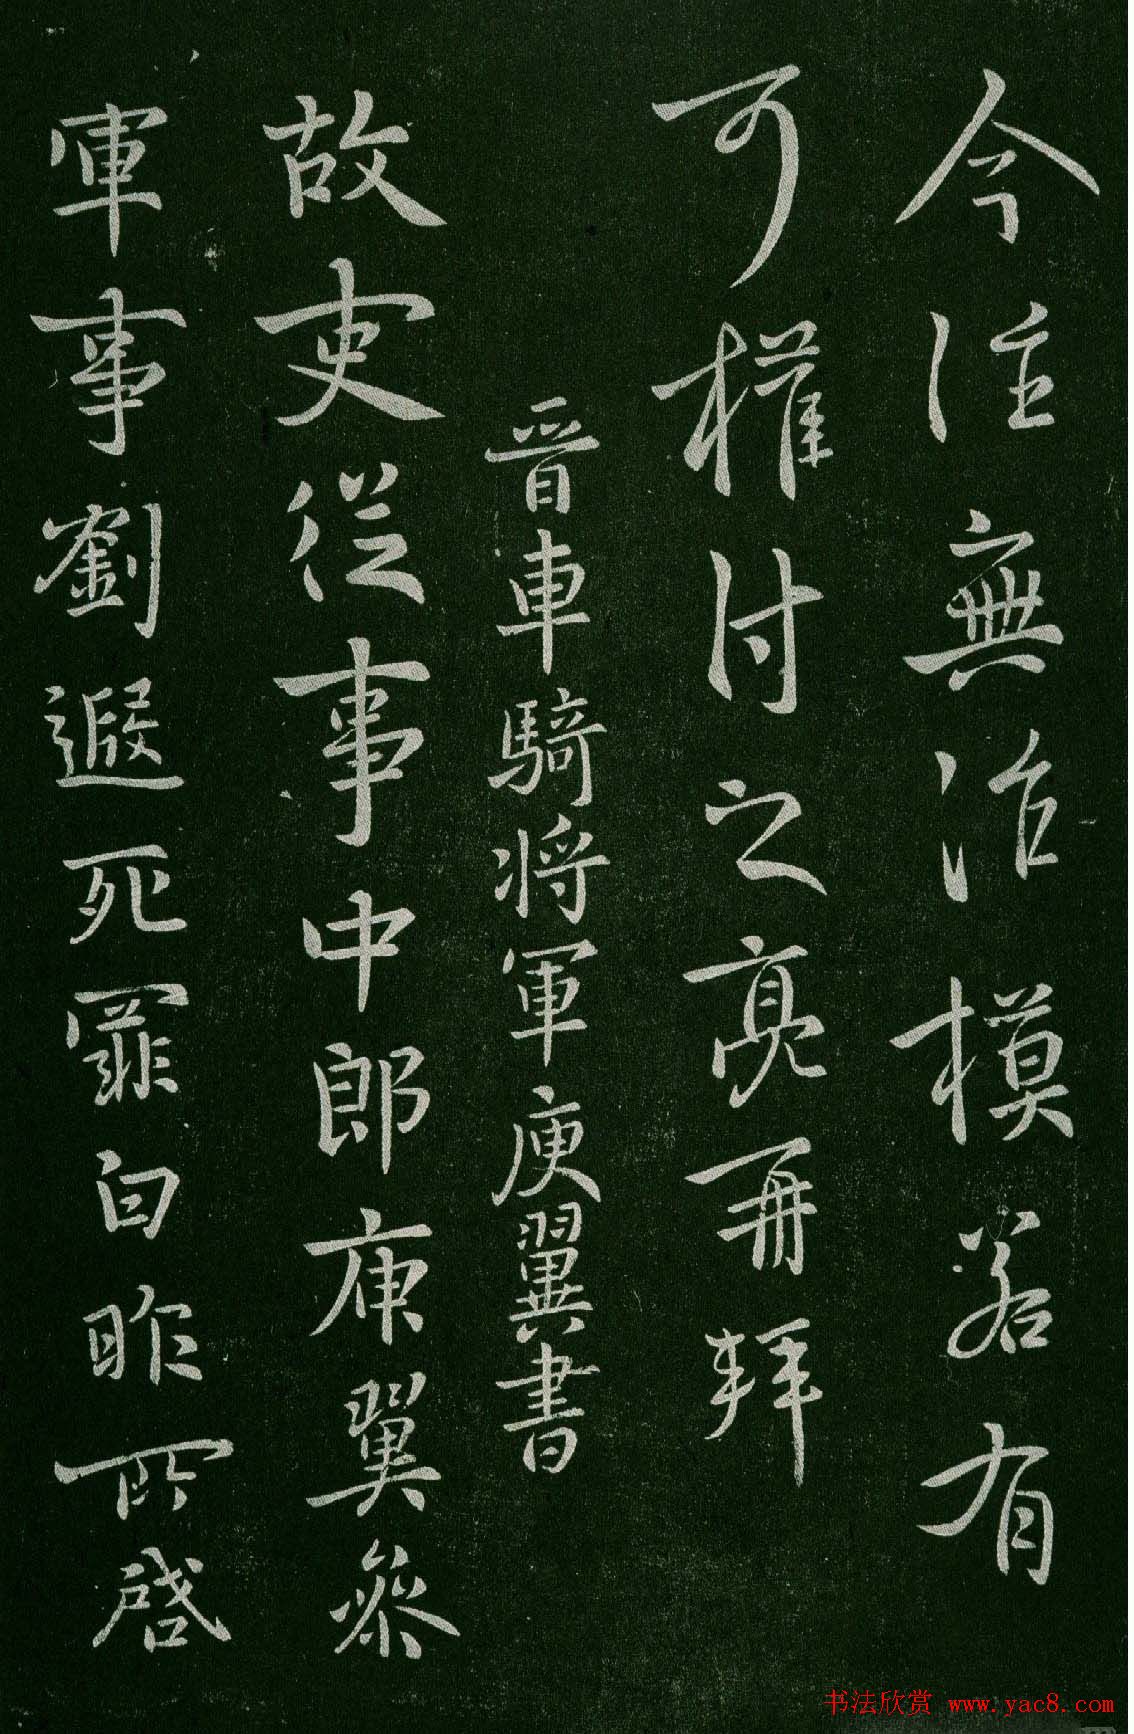 今往無治模若有
可權付之亮再拜
晉車騎將軍庾翼書
故吏從事中郎庾翼參
軍事劉遐死罪白昨所啓
书法欣赏 www.yac8.com